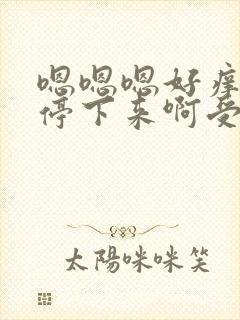 嗯嗯嗯好痒
停下来啊受
太陽咪咪笑